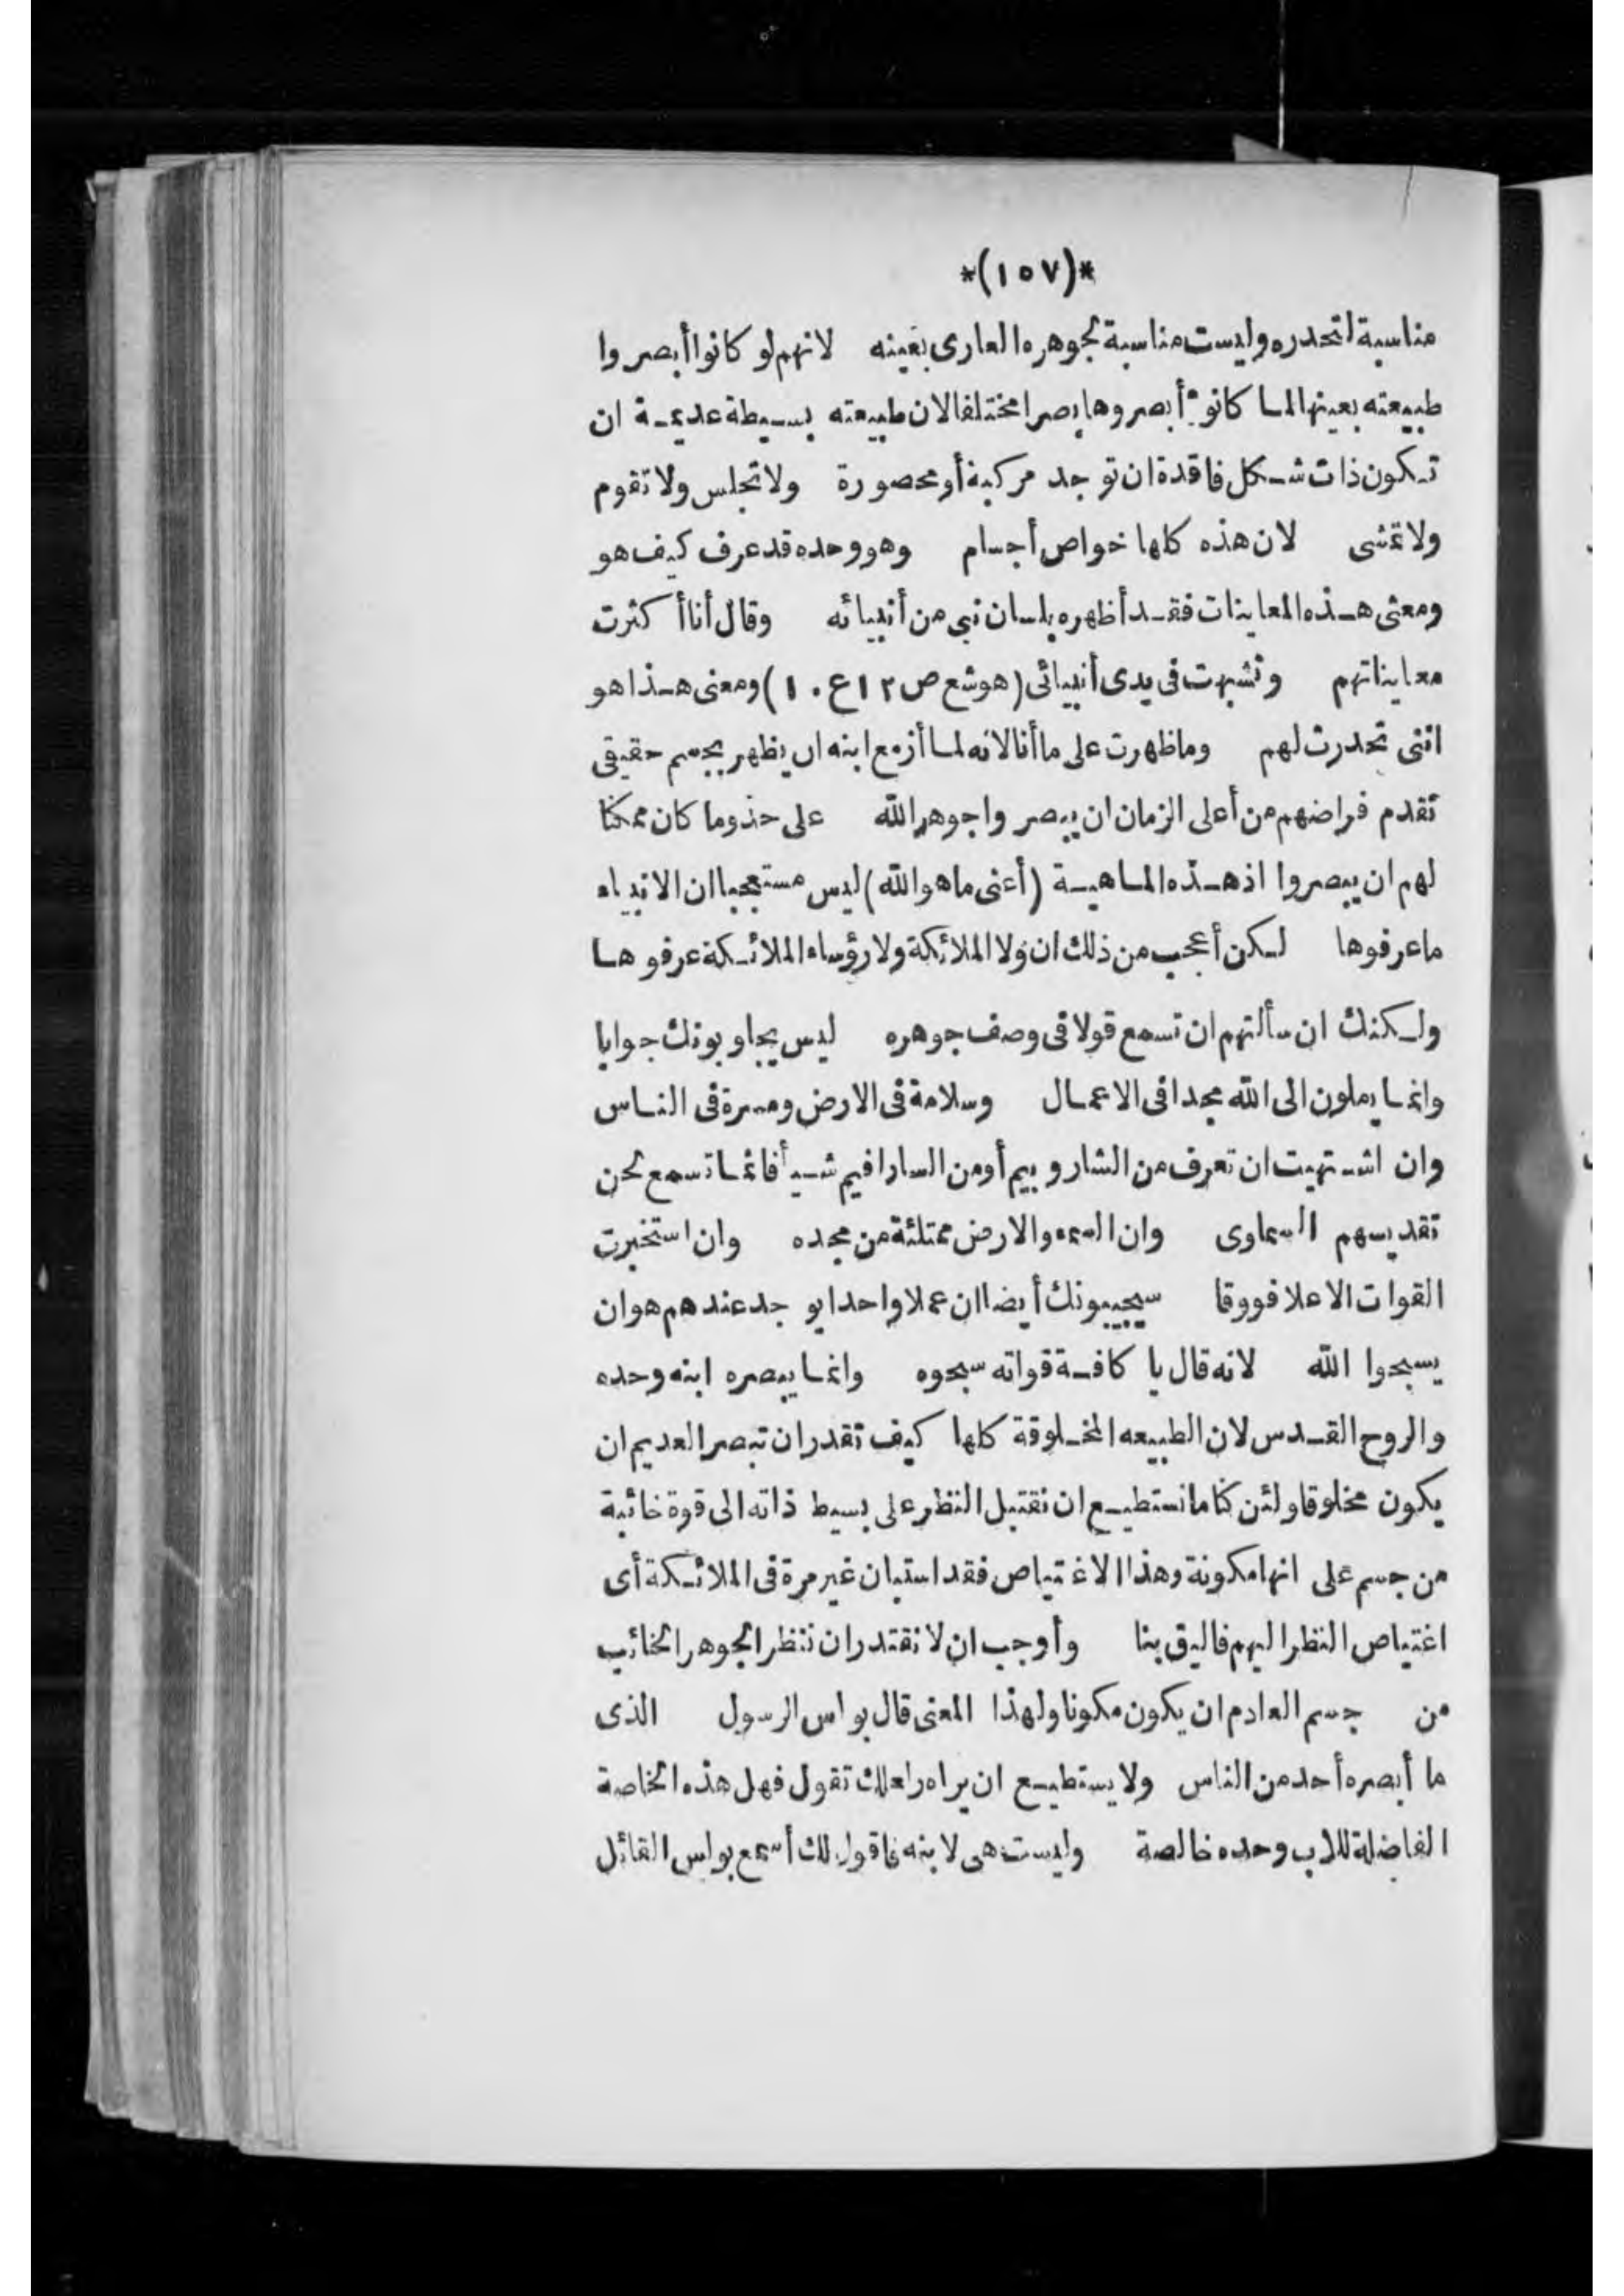 *(١٥٧)*
مناسبة لتحدره وليست مناسبة لجوهره العارى بعينه لانهم لو كانوا أبصروا
طبيعته بعينها لما كانوا أبصروها بصرا مختلفا لان طبيعته بسيطة عديمة ان
تكون ذات شكل فاقدة ان توجد مركبة أو محصورة ولا تجلس ولا تقوم
ولا تمشى لان هذه كلها خواص أجسام وهو وحده قد عرف كيف هو
ومعنى هذه المعاينات فقد أظهره بلسان نبى من أنبيائه وقال أنا أكثرت
معايناتهم وتشبهت فى يدى أنبيائى (هوشع ص ١٢ ع ١٠) ومعنى هذا هو
اننى تحدرت لهم وما ظهرت على ما أنا لانه لما أزمع ابنه ان يظهر بجسم حقيقى
تقدم فراضهم من أعلى الزمان ان يبصروا جوهر الله على حذو ما كان ممكنا
لهم ان يبصروا اذ هذه الماهية (أعنى ما هو الله) ليس مستعجبا ان الانبياء
ما عرفوها لكن أعجب من ذلك ان ولا الملائكة ولا رؤساء الملائكة عرفوها
ولكنك ان سألتهم ان تسمع قولا فى وصف جوهره ليس يجاوبونك جوابا
وانما يرملون الى الله مجدا فى الاعمال وسلامة فى الارض ومسرة فى الناس
وان اشتهيت ان تعرف من الشاروبيم أو من السارافيم شيأ فانما تسمع لحن
تقديسهم السماوى وان السمء والارض ممتلئة من مجده وان استخبرت
القوات الاعلا فووقا سيجيبونك أيضا ان عملا واحدا يوجد عندهم هو ان
يسبحوا الله لانه قال يا كافة قواته سبحوه وانما يبصره ابنه وحده
والروح القدس لان الطبيعه المخلوقة كلها كيف تقدر ان تبصر العديم ان
يكون مخلوقا ولئن كنا ما نستطيع ان نقتبل النظر على بسيط ذاته الى قوة خائبة
من جسم على انها مكونة وهذا الاغتياص فقد استبان غير مرة فى الملائكة أى
اغتياص النظر اليهم فاليق بنا وأوجب ان لا نقتدر ان ننظر الجوهر الخائب
من جسم العادم ان يكون مكونا ولهذا المعنى قال بولس الرسول الذى
ما أبصره أحد من الناس ولا يستطيع ان يراه ولعلك تقول فهل هذه الخاصة
الفاضلة للاب وحده خالصة وليست هى لابنه فاقول لك أسمع بولس القائل